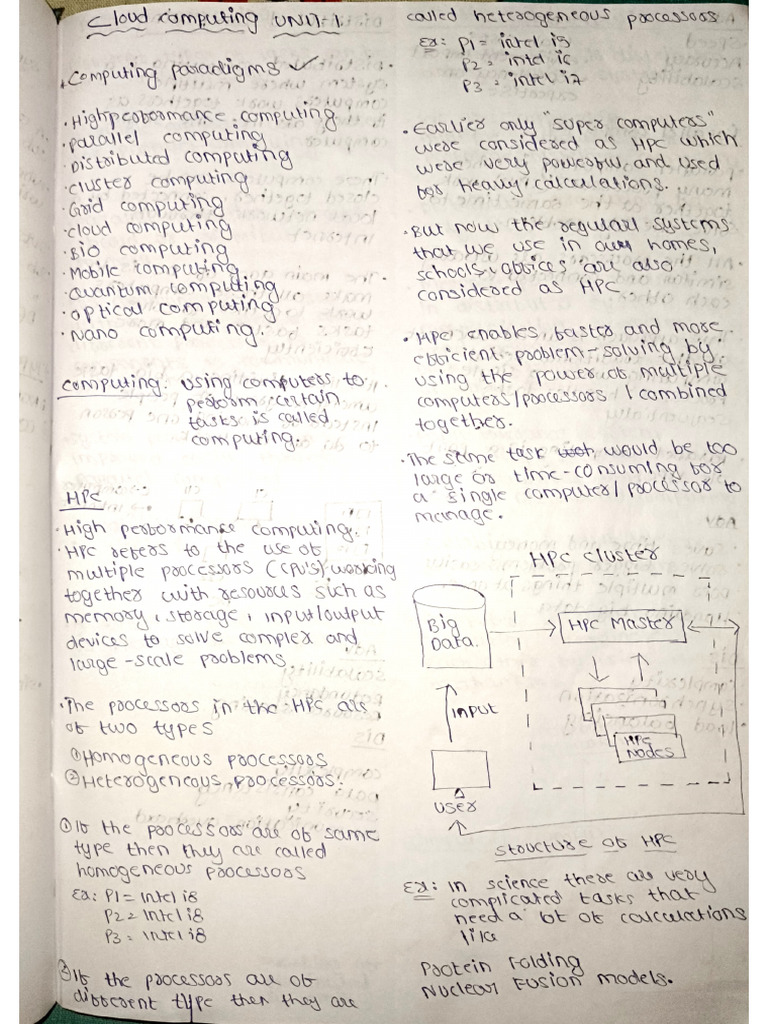 Cloud computing UNIT-1
Computing paradigms ✓
• High performance computing
• Parallel computing
• Distributed computing
• cluster computing
• Grid computing
• cloud computing
• BIO computing
• Mobile computing
• Quantum computing
• optical computing
• Nano computing.
Computing: using computers to
perform certain
tasks is called
computing.
HPC
• High performance computing.
• HPC refers to the use of
multiple processors (CPU'S) working
together with resources such as
memory, storage, input/output
devices to solve complex and
large-scale problems.
• The processors in the HPC are
of two types
① Homogeneous processors
② Heterogeneous processors.
① If the processors are of same
type then they are called
homogeneous processors
Ex: P1 = intel i8
P2 = intel i8
P3 = intel i8
② If the processors are of
different type then they are
called heterogeneous processors
Ex: P1 = intel i5
P2 = intel i6
P3 = intel i7
• Earlier only "super computers"
were considered as HPC which
were very powerful and used
for heavy calculations.
• But now the regular systems
that we use in our homes,
schools, offices are also
considered as HPC
• HPC enables faster and more
efficient problem-solving by
using the power of multiple
computers/processors combined
together.
• The same task would be too
large or time-consuming for
a single computer/processor to
manage.
HPC cluster
Big
Data.
HPC Master
INPUT
HPC
NODES
USER
Structure of HPC
Ex: In science there are very
complicated tasks that
need a lot of calculations
like
Protein Folding
Nuclear Fusion models.